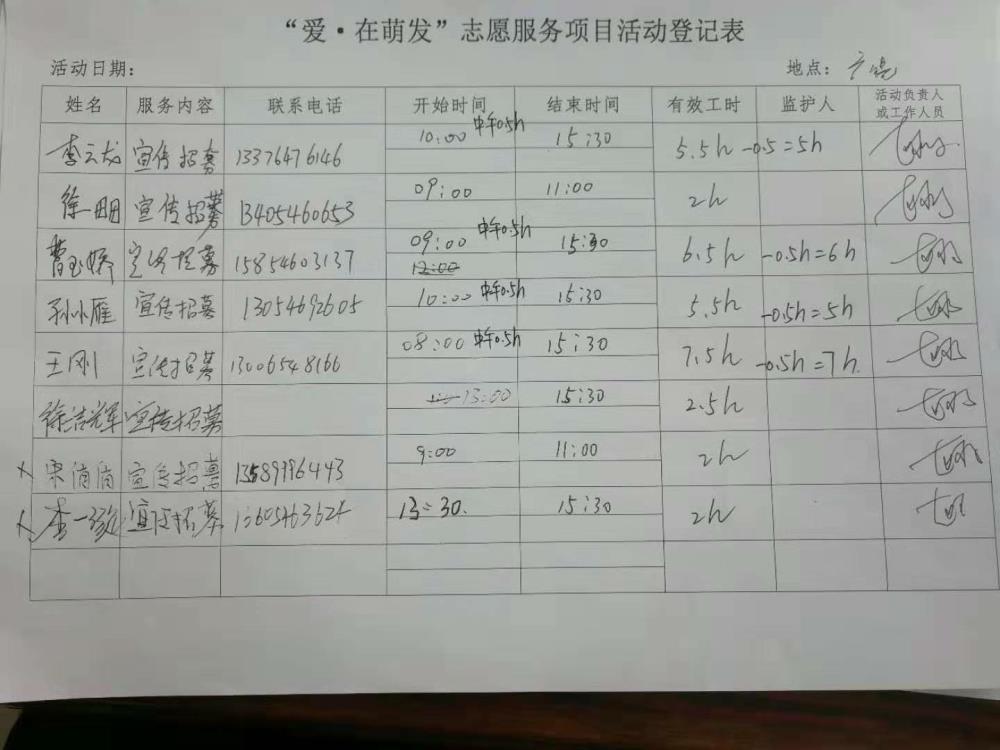 “爱·在萌发”志愿服务项目活动登记表
活动日期： 地点：
姓名 服务内容 联系电话 开始时间 结束时间 有效工时 监护人 活动负责人或工作人员
李云龙 宣传招募 13376476146 10:00 中午0.5h 15:30 5.5h -0.5=5h
徐一明 宣传招募 13405460653 09:00 11:00 2h
曹玉娇 宣传招募 15854603137 09:00 中午0.5h 15:30 6.5h -0.5h=6h
12:00
孙小雁 宣传招募 13054692605 10:00 中午0.5h 15:30 5.5h -0.5h=5h
王刚 宣传招募 13006548166 08:00 中午0.5h 15:30 7.5h -0.5h=7h
徐洁辉 宣传招募 13:00 15:30 2.5h
x 宋俏俏 宣传招募 13589996443 9:00 11:00 2h
x 李一 宣传招募 13:30. 15:30 2h